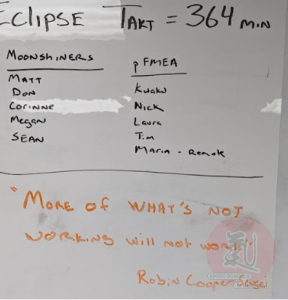 ECLIPSE TAKT = 364 MIN
MOONSHINERS
MATT
DON
CORINNE
MEGAN
SEAN
pFMEA
KWAKU
NICK
LAURA
TIM
MARIA - REMOK
"MORE OF WHAT'S NOT
WORKING WILL NOT WORK"
ROBIN COOPER